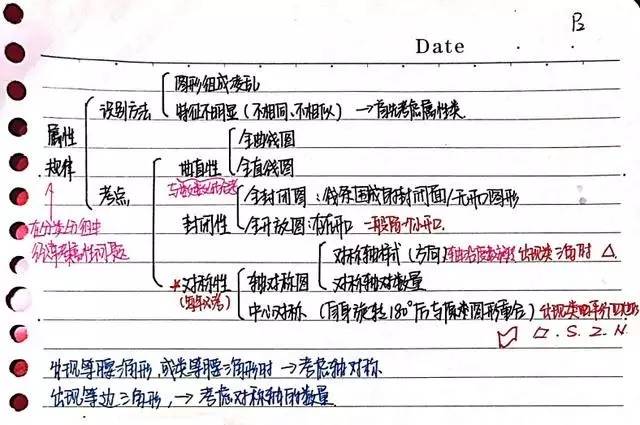 P2
Date
图形组成凌乱
识别方法
特征不明显（不相同、不相似）→首先考虑属性类
属性
规律
全曲线图
曲直性
全直线图
考点
全封闭图：线条围成的封闭面/无开口图形
封闭性
全开放图：有开口 一般留一个小开口.
在分类分组中
对称轴样式（方向） 出现类三角时 △
*对称性
轴对称图
对称轴数量
中心对称（自身旋转180°后与原来图形重合）出现类
▱.S.Z.N.
出现等腰三角形,或类等腰三角形时→考虑轴对称
出现等边三角形,→考虑对称轴的数量